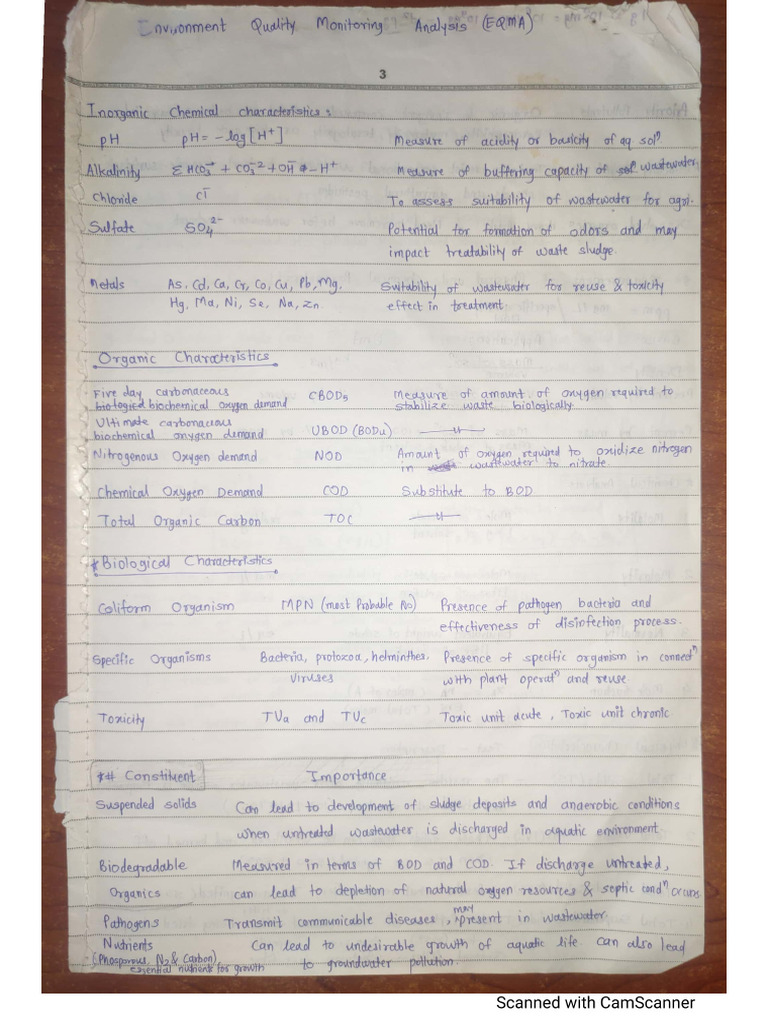 Environment Quality Monitoring Analysis (EQMA)
3
Inorganic Chemical characteristics:
pH pH = -log[H+] Measure of acidity or basicity of aq. solⁿ.
Alkalinity Σ HCO₃⁻ + CO₃⁻² + OH⁻ - H⁺ Measure of buffering capacity of wastewater
Chloride Cl⁻ To assess suitability of wastewater for agri.
Sulfate SO₄²⁻ Potential for formation of odors and may
impact treatability of waste sludge.
Metals As, Cd, Ca, Cr, Co, Cu, Pb, Mg, Suitability of wastewater for reuse & toxicity
Hg, Ma, Ni, Se, Na, Zn. effect in treatment
Organic Characteristics
Five day carbonaceous CBOD₅ Measure of amount of oxygen required to
biological biochemical oxygen demand stabilize waste biologically
Ultimate carbonaceous
biochemical oxygen demand UBOD (BODu) —"—
Nitrogenous Oxygen demand NOD Amount of oxygen required to oxidize nitrogen
in wastewater to nitrate.
Chemical Oxygen Demand COD Substitute to BOD
Total Organic Carbon TOC —"—
* Biological Characteristics
Coliform Organism MPN (most Probable No) Presence of pathogen bacteria and
effectiveness of disinfection process.
Specific Organisms Bacteria, protozoa, helminthes. Presence of specific organism in connectⁿ
Viruses with plant operatⁿ and reuse
Toxicity TVa and TVc Toxic unit acute, Toxic unit chronic
*# Constituent Importance
Suspended solids Can lead to development of sludge deposits and anaerobic conditions
when untreated wastewater is discharged in aquatic environment.
Biodegradable Measured in terms of BOD and COD. If discharge untreated,
Organics can lead to depletion of natural oxygen resources & septic condⁿ occurs
Pathogens Transmit communicable diseases, may present in wastewater
Nutrients Can lead to undesirable growth of aquatic life can also lead
(Phosporous, N₂ & Carbon) to groundwater pollution.
essential nutrients for growth
Scanned with CamScanner